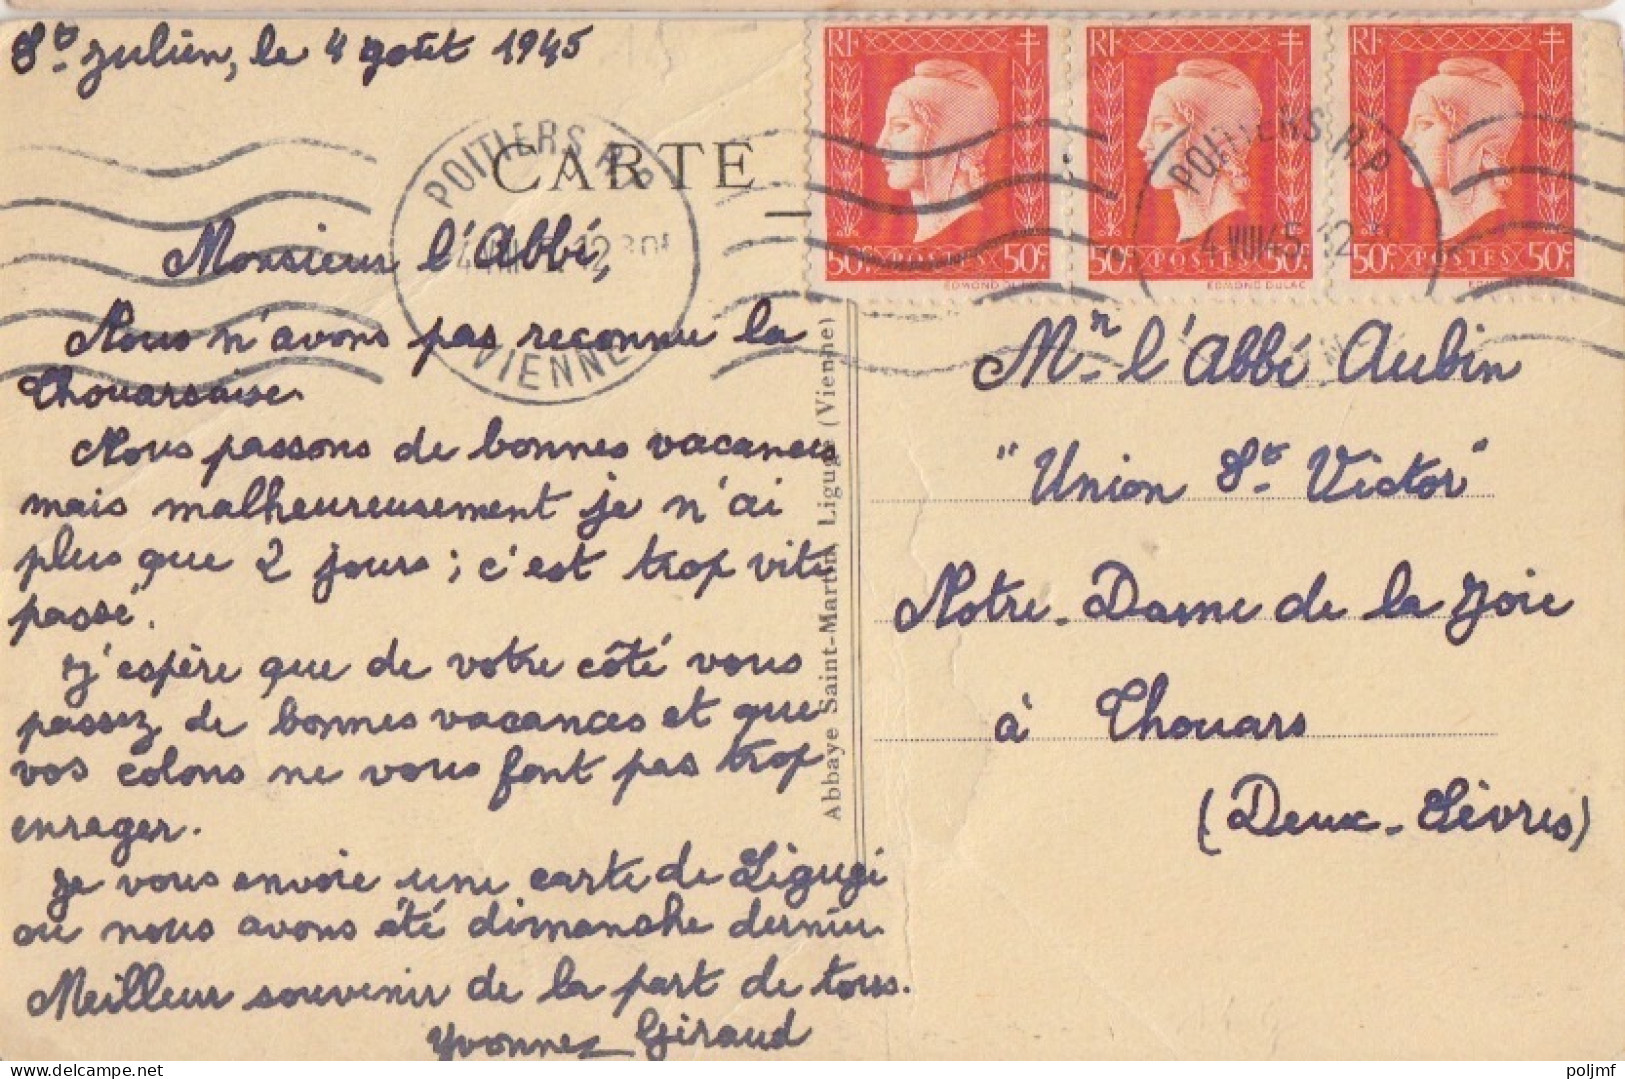 St. Julien, le 4 août 1945
RF
50c. POSTES 50c.
EDMOND DULAC
RF
50c. POSTES 50c.
EDMOND DULAC
RF
50c. POSTES 50c.
POITIERS R.P.
VIENNE
POITIERS R.P.
4 VIII 45 12
CARTE
Monsieur l'Abbé,
Nous n'avons pas reconnu la
Thouarsaise.
Nous passons de bonnes vacances
mais malheureusement je n'ai
plus que 2 jours ; c'est trop vite
passé.
J'espère que de votre côté vous
passez de bonnes vacances et que
vos colons ne vous font pas trop
enrager.
Je vous envoie une carte de Ligugé
ou nous avons été dimanche dernier.
Meilleur souvenir de la part de tous.
Yvonne Giraud
Abbaye Saint-Martin, Ligugé (Vienne)
Mr l'Abbé Aubin
"Union St. Victor"
Notre-Dame de la Joie
à Thouars
(Deux-Sèvres)
poljmf